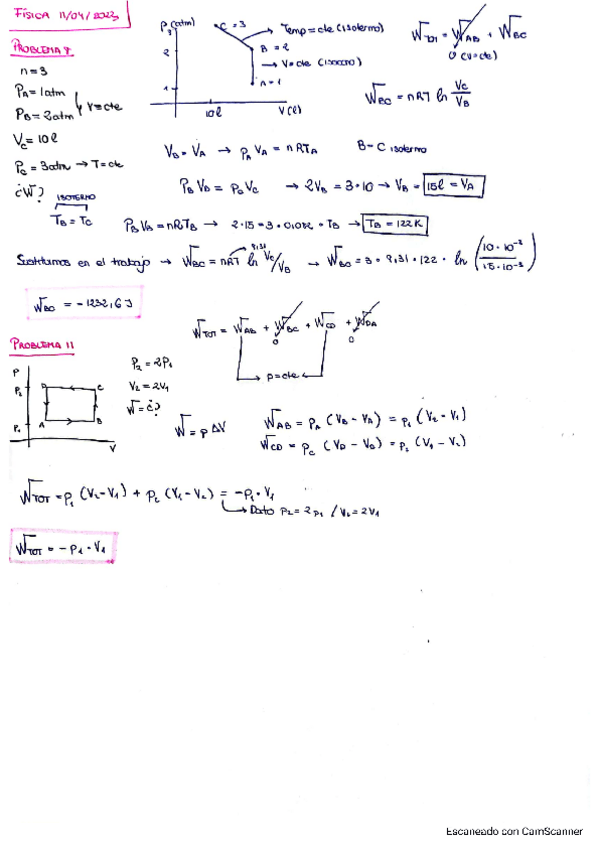 FÍSICA 11/04/2023
PROBLEMA 7
n=3
PA=1atm
PB=2atm
V=cte
VC=10l
PC=3atm → T=cte
¿W?
ISOTERMO
TB=TC
P(atm)
3
2
1
10l
V(l)
C=3
B=2
A=1
Temp=cte (isotermo)
V=cte (isocoro)
WTOT = WAB + WBC
0 (V=cte)
WBC = nRT ln VC/VB
VB=VA → PA VA = nRTA
B-C isotermo
PB VB = PC VC → 2VB = 3·10 → VB = 15l = VA
PB VB = nRTB → 2·15=3·0,082·TB → TB=122K
Sustituimos en el trabajo → WBC = nRT ln VC/VB → WBC = 3·8,31·122·ln (10·10⁻³/15·10⁻³)
8,31
WBC = -1232,6J
PROBLEMA 11
P
P2
P1
D
C
A
B
V
P2=2P1
V2=2V1
W=¿?
WTOT = WAB + WBC + WCD + WDA
0
0
p=cte
W=p ΔV
WAB = PA (VB-VA) = P1 (V2-V1)
WCD = PC (VD-VC) = P2 (V1-V2)
WTOT = P1 (V2-V1) + P2 (V1-V2) = -P1·V1
Dato P2=2P1 / V2=2V1
WTOT = -P1·V1
Escaneado con CamScanner